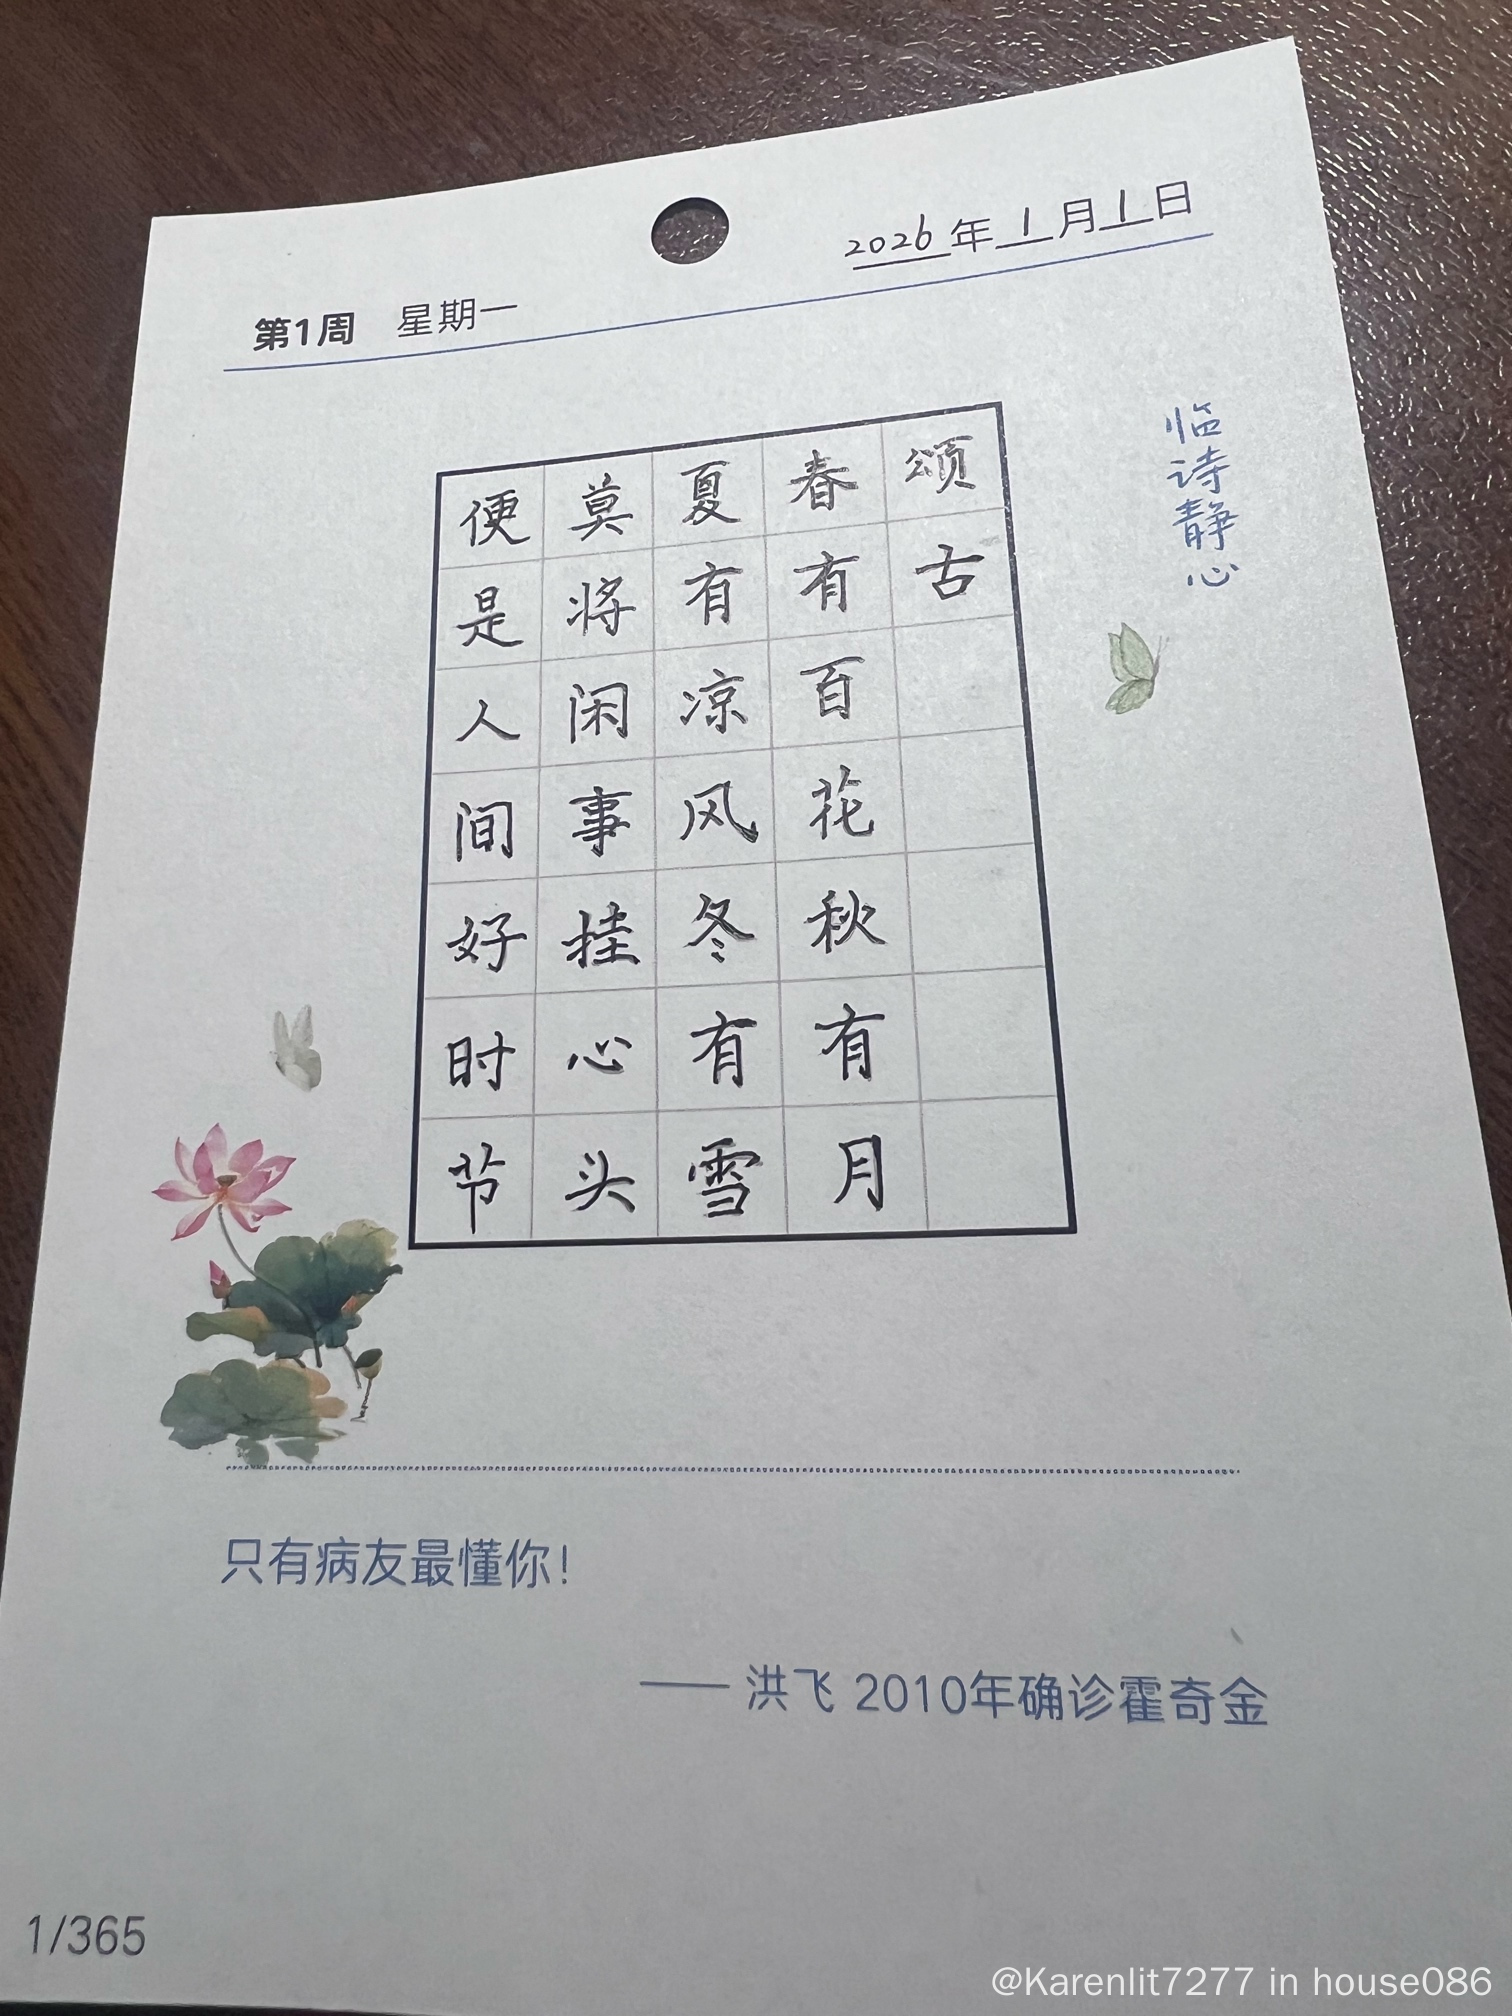 2026年1月1日
第1周 星期一
临诗静心
颂古
春有百花秋有月
夏有凉风冬有雪
莫将闲事挂心头
便是人间好时节
只有病友最懂你！
—— 洪飞 2010年确诊霍奇金
1/365
@Karenlit7277 in house086